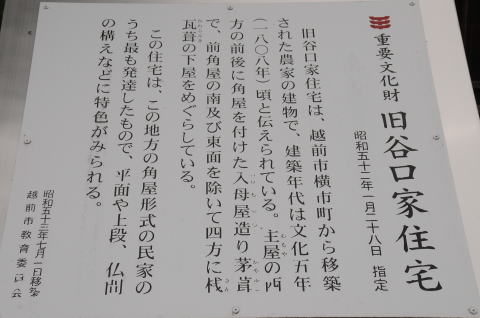 重要文化財 旧谷口家住宅
昭和五十二年一月二十八日 指定
旧谷口家住宅は、越前市横市町から移築
された農家の建物で、建築年代は文化五年
(一八〇八年)頃と伝えられている。主屋の西
方の前後に角屋を付けた入母屋造り茅葺
で、前角屋の南及び東面を除いて四方に桟
瓦葺の下屋をめぐらしている。
この住宅は、この地方の角屋形式の民家の
うち最も発達したもので、平面や上段、仏間
の構えなどに特色がみられる。
昭和五十三年七月一日移築
越前市教育委員会